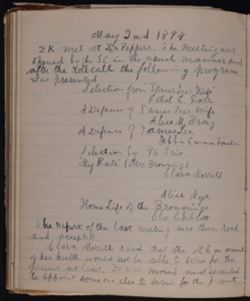 May 2nd 1894
EK met at Dr Peppers. The Meeting was
opened by the in the usual manner and
after the roll call the following program
was presented
Selection from "James Lee's Wife"
Ethel C.
A Defence of James Lee's Wife
Alice M.
A Defence of James Lee
Selection by
"My Kate" (Mrs Browning)
Clara Morrill
Alice
Home Life of the Brownings
The report of the last meeting was then read
and accepted.
Clara Morrill said that on account
of her health would not be able to serve for the
present at least. It was moved and seconded
to appoint someone else to serve for the present